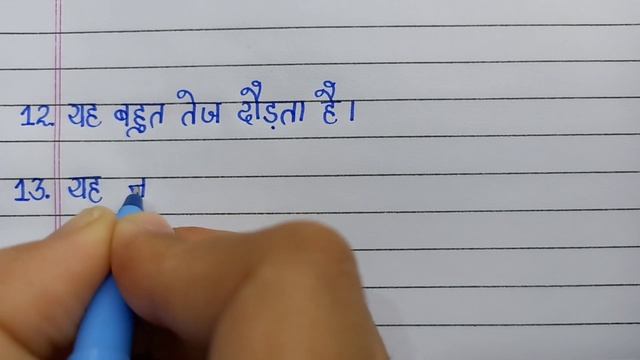 12. यह बहुत तेज दौड़ता है।
13. यह